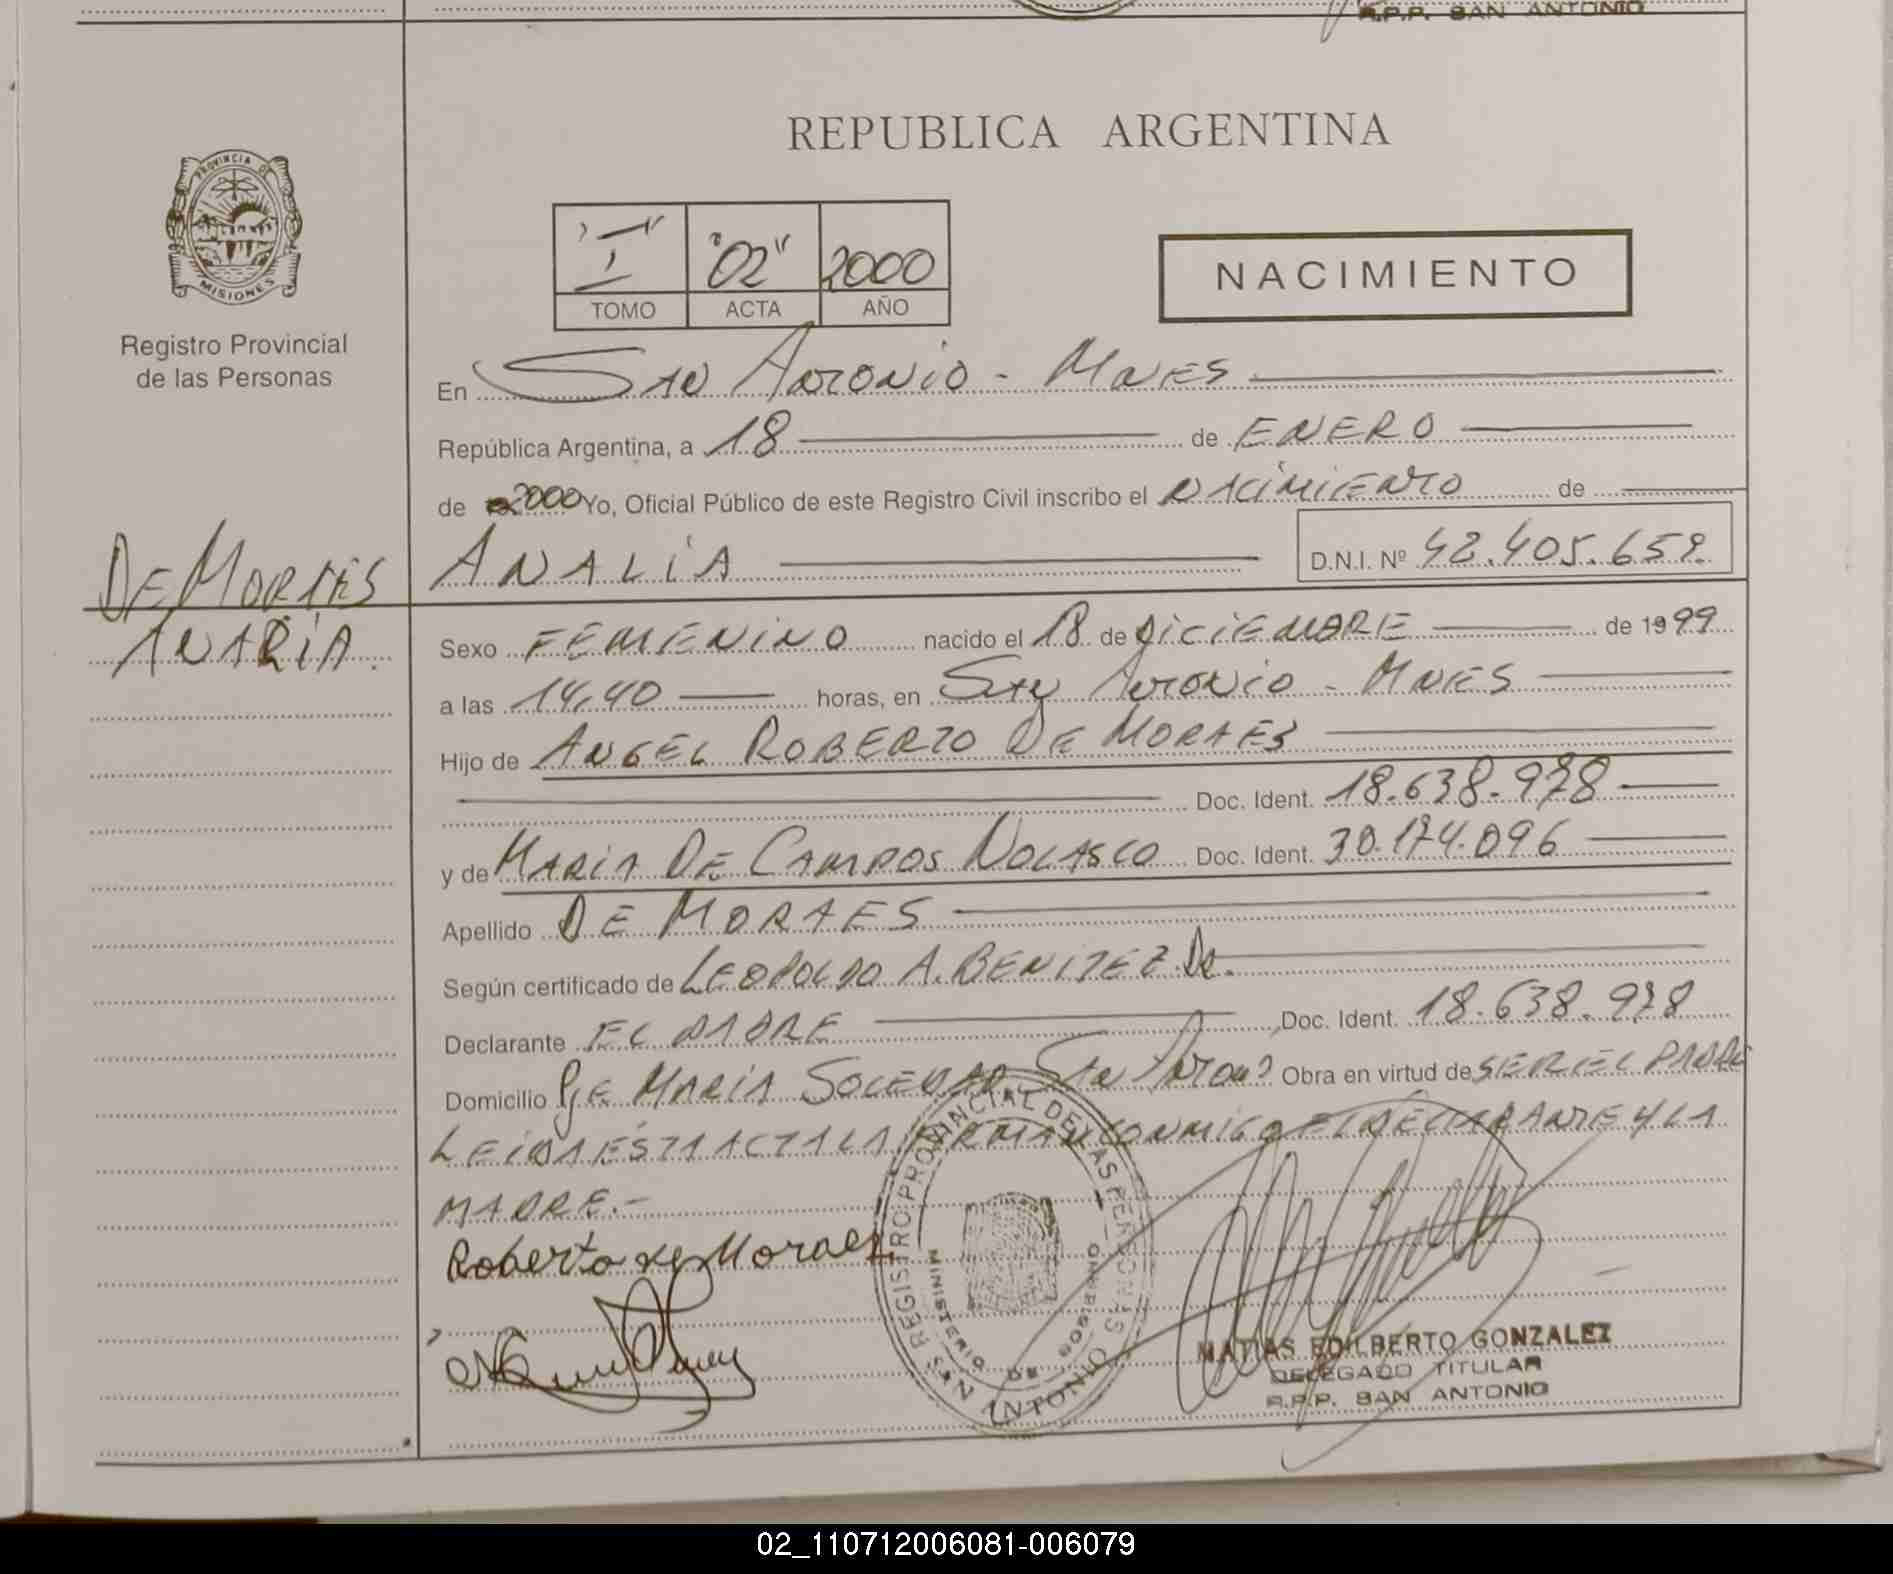 R.P.P. SAN ANTONIO
REPUBLICA ARGENTINA
PROVINCIA DE
MISIONES
Registro Provincial
de las Personas
"I" "02" 2000
TOMO ACTA AÑO
NACIMIENTO
En San Antonio - Mnes
República Argentina, a 18 de ENERO
de 2000 Yo, Oficial Público de este Registro Civil inscribo el NACIMIENTO de
DE MORAES
ANALIA
ANALIA D.N.I. Nº 42.405.659
Sexo FEMENINO nacido el 18 de DICIEMBRE de 1999
a las 14,40 horas, en San Antonio - MNES
Hijo de ANGEL ROBERTO DE MORAES
Doc. Ident. 18.638.978
y de MARIA DE CAMPOS NOLASCO Doc. Ident. 30.174.096
Apellido DE MORAES
Según certificado de LEOPOLDO A. BENITEZ Dr.
Declarante EL PADRE Doc. Ident. 18.638.978
Domicilio Pje MARIA SOLEDAD San Antonio Obra en virtud de SER EL PADRE
LEIDA ESTA ACTA LA FIRMAN CONMIGO EL DECLARANTE Y LA
MADRE.-
Roberto de Moraez
REGISTRO PROVINCIAL DE LAS PERSONAS
SAN ANTONIO
MINISTERIO DE GOBIERNO
MATIAS EDILBERTO GONZALEZ
DELEGADO TITULAR
R.P.P. SAN ANTONIO
02_110712006081-006079